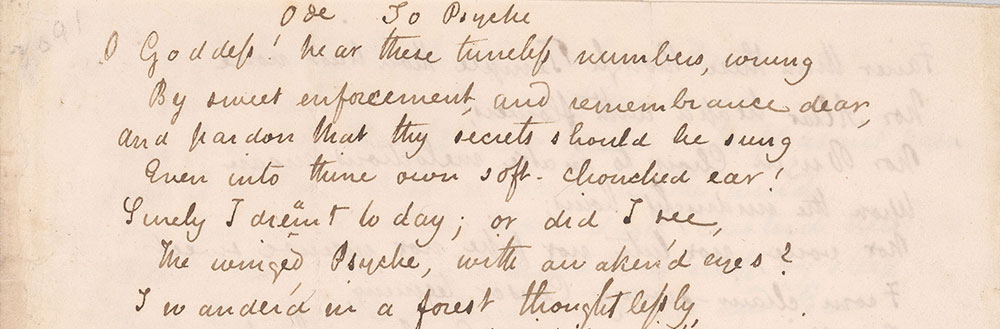 Ode To Psyche
O Goddess! hear these tuneless numbers, wrung
By sweet enforcement, and remembrance dear,
And pardon that thy secrets should be sung
Even into thine own soft-chonched ear!
Surely I dreamt to day; or did I see,
The winged Psyche, with awaken'd eyes?
I wander'd in a forest thoughtlessly,